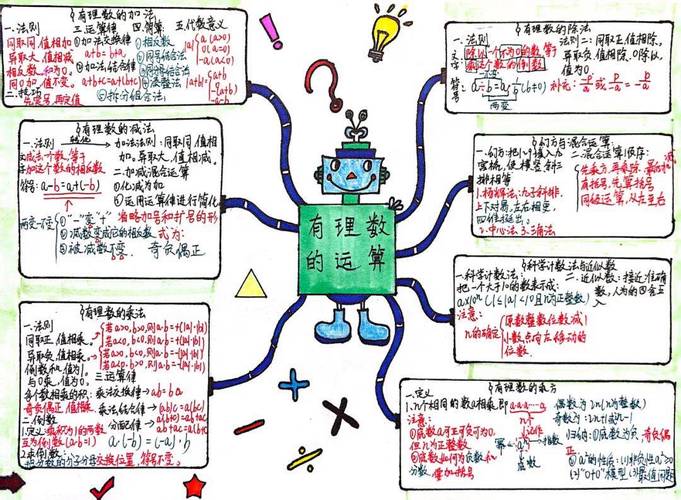 有理数的运算
§有理数的加法
一.法则
同号取同,值相加
异号取大,值相减
相反数,和为0。
同0加,值不变。
二.技巧
先定号,再定值
三.运算律
①加法交换律
a+b=b+a
②加法结合律
a+b+c=a+(b+c)
四.简算
①相反数
②同号结合法
④凑整法
⑤拆分组合法
五.代数意义
§有理数的减法
一.法则
减去一个数,等于
加这个数的相反数
符号:a-b=a+(-b)
两变一不变
①"-"变"+"
②减数变成它的相反数
③被减数不变.
转化
加法法则:同取同,值相加。异取大,值相减。
二.加减混合运算
①化减为加
②运用运算律进行简化
省略加号和括号的形式为:
奇负偶正
§有理数的乘法
一.法则
同取正,值相乘。
异取负,值相乘。
倒数和值为1。
与0乘,值为0。
多个数相乘的积:
奇负偶正,值相乘。
若a>0,b>0,则a·b=+(|a|·|b|)
若a<0,b<0,则a·b=+(|a|·|b|)
若a>0,b<0,则a·b=-(|a|·|b|)
若a<0,b>0,则a·b=-(|a|·|b|)
三.运算律
乘法交换律→ab=ba
乘法结合律→(ab)c=a(bc)
分配律→
二.倒数
1.定义:乘积为1的两数互为倒数(a·b=1)
a·(-b)=(-a)·b
2.求倒数:
把分数的分子分母交换位置,符号不变。
§有理数的除法
文字
除以一个不为0的数,等于
乘这个数的倒数。
符号
a÷b=a·1/b(b≠0)
两变
法则二:同取正,值相除。
异取负,值相除,0除以,
值为0
§幻方与混合运算
一.幻方:把1~9填入九宫格,使横竖斜排相等
1.杨辉法:九子斜排,
上下对易,左右相更,
四维挺出。
2.中心法 3.三角法
二.混合运算顺序:
先乘方,再乘除,最后加减
有括号,先算括号
同级运算,从左至右
§科学计数法与近似数
一.科学计数法:
把一个大于10的数表示成:
a×10ⁿ(1≤|a|<10且n为正整数)
注意:
n的确定
原数整数位数减1
小数点向左移动的位数.
二.近似数:接近准确数,人为的四舍五入
§有理数的乘方
一.定义
1.n个相同的数a相乘,即a·a·a…a
n个
注意:
①底数a可正可负可为0,
但n为正整数
②底数如何为负数和分数,要加括号
幂
指数
底数
偶数为2n(n为整数)
奇数为:2n+1或2n-1
归纳:①底数为负,奇负偶正
②a²的性质:(1)非负性a²≥0
(2)"0+0"模型 (3)最值问题